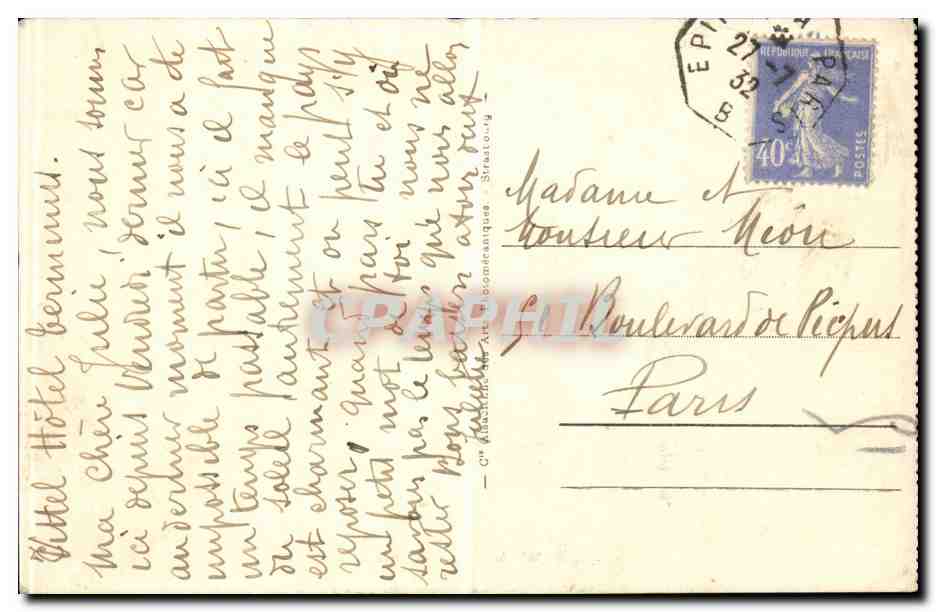 Vittel Hôtel Bermures.
Ma chère Julie, nous sommes
ici depuis Vendredi dernier car
au dernier moment il nous a été
impossible de partir, ici il fait
un temps passable, il manque
du soleil autrement le pays
est charmant et on peut s'y
reposer, quand pars tu et où
un petit mot de toi nous ne
savons pas le temps que nous allons
rester Bons baisers à tous deux
— Cie Alsacienne des Arts Photomécaniques. - Strasbourg —
EPI PARIS
27 -7
32
B
RÉPUBLIQUE FRANÇAISE
40c
POSTES
Madame et
Monsieur Méon
Boulevard de Picpus
Paris
CPAPHIL